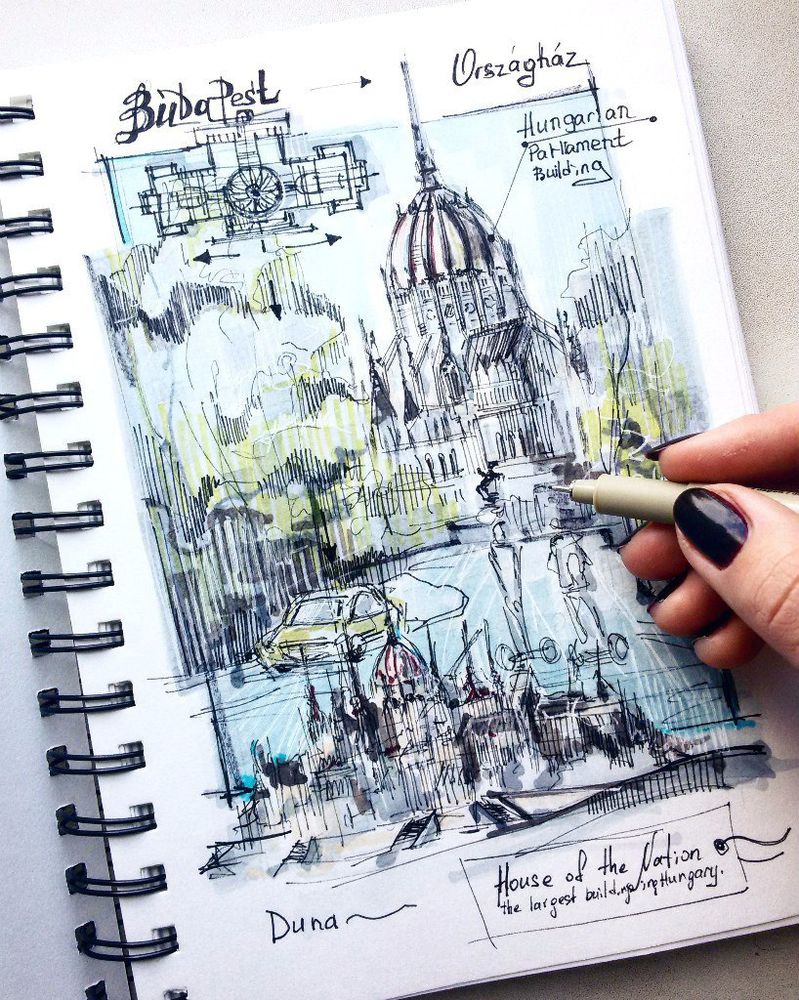 BudaPest
Országház
Hungarian
Parliament
Building
House of the Nation
the largest building in Hungary.
Duna